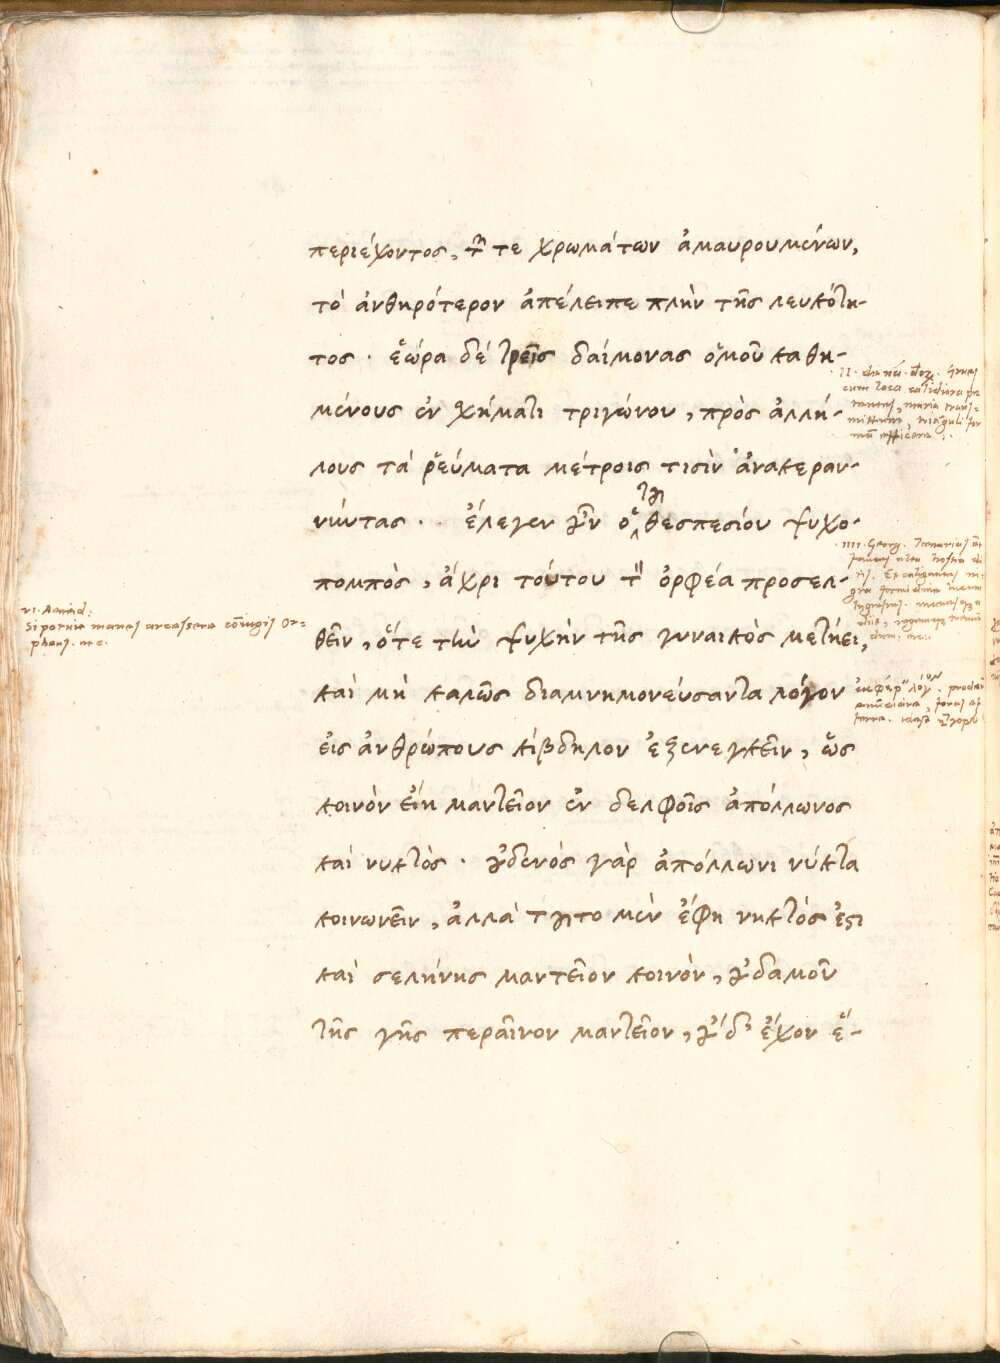 περιέχοντος, τῶν τε χρωμάτων ἀμαυρουμένων,
τὸ ἀνθηρότερον ἀπέλειπε πλὴν τῆς λευκότη-
τος · ἑώρα δὲ τρεῖς δαίμονας ὁμοῦ καθη-
μένους ἐν σχήματι τριγώνου, πρὸς ἀλλή-
λους τὰ ῥεύματα μέτροις τισὶν ἀνακεραν-
νύντας · ἔλεγεν οὖν ὁ τοῦ θεσπεσίου ψυχο-
πομπὸς, ἄχρι τούτου τὸν ὀρφέα προσελ-
θεῖν, ὅτε τὴν ψυχὴν τῆς γυναικὸς μετῄει,
καὶ μὴ καλῶς διαμνημονεύσαντα λόγον
εἰς ἀνθρώπους κίβδηλον ἐξενεγκεῖν, ὡς
κοινὸν εἴη μαντεῖον ἐν δελφοῖς ἀπόλλωνος
καὶ νυκτὸς · οὐδενὸς γὰρ ἀπόλλωνι νύκτα
κοινωνεῖν, ἀλλὰ τοῦτο μὲν ἔφη νυκτὸς ἐστι
καὶ σελήνης μαντεῖον κοινὸν, οὐδαμοῦ
τῆς γῆς περαῖνον μαντεῖον, οὐδ' ἔχον ἕ-
VI. Aeneid.
Si potuit manes arcessere coniugis Or=
pheus. etc.
II. de . Grues
cum loca calidiora
maria trans=
mittunt, trianguli
IIII. Georg. Taenarias